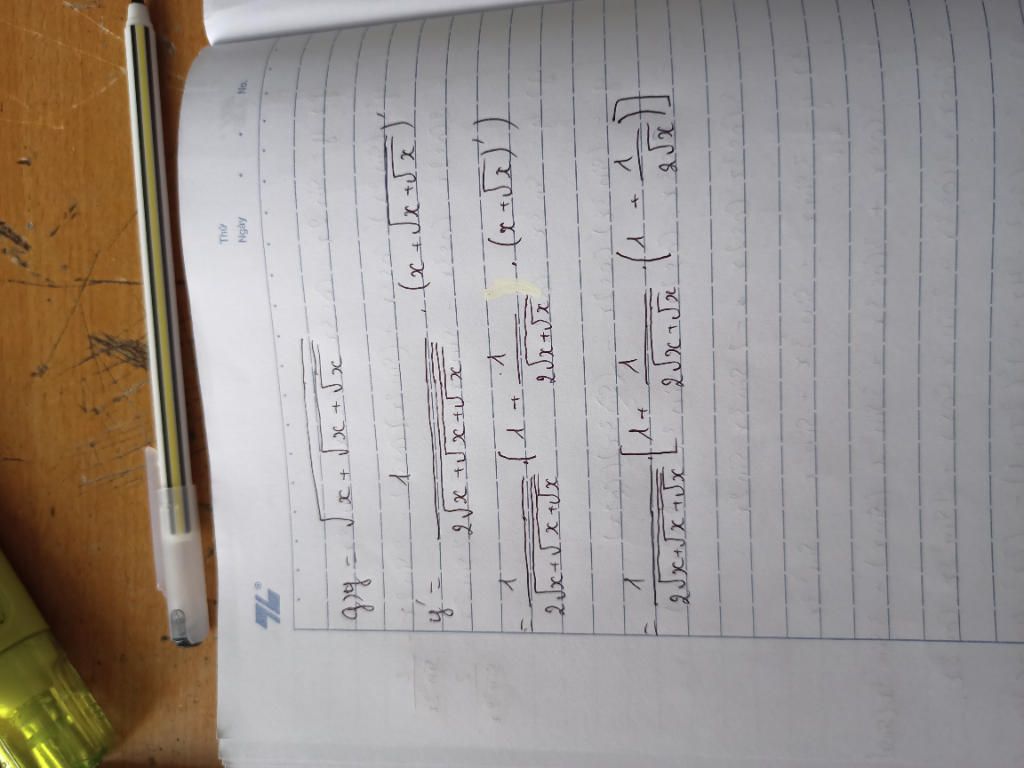 Thứ
Ngày
No.
g) y = √(x + √(x + √x))
y' = 1/(2√(x + √(x + √x))) . (x + √(x + √x))'
= 1/(2√(x + √(x + √x))) . (1 + 1/(2√(x + √x)) . (x + √x)')
= 1/(2√(x + √(x + √x))) [1 + 1/(2√(x + √x)) . (1 + 1/(2√x))]